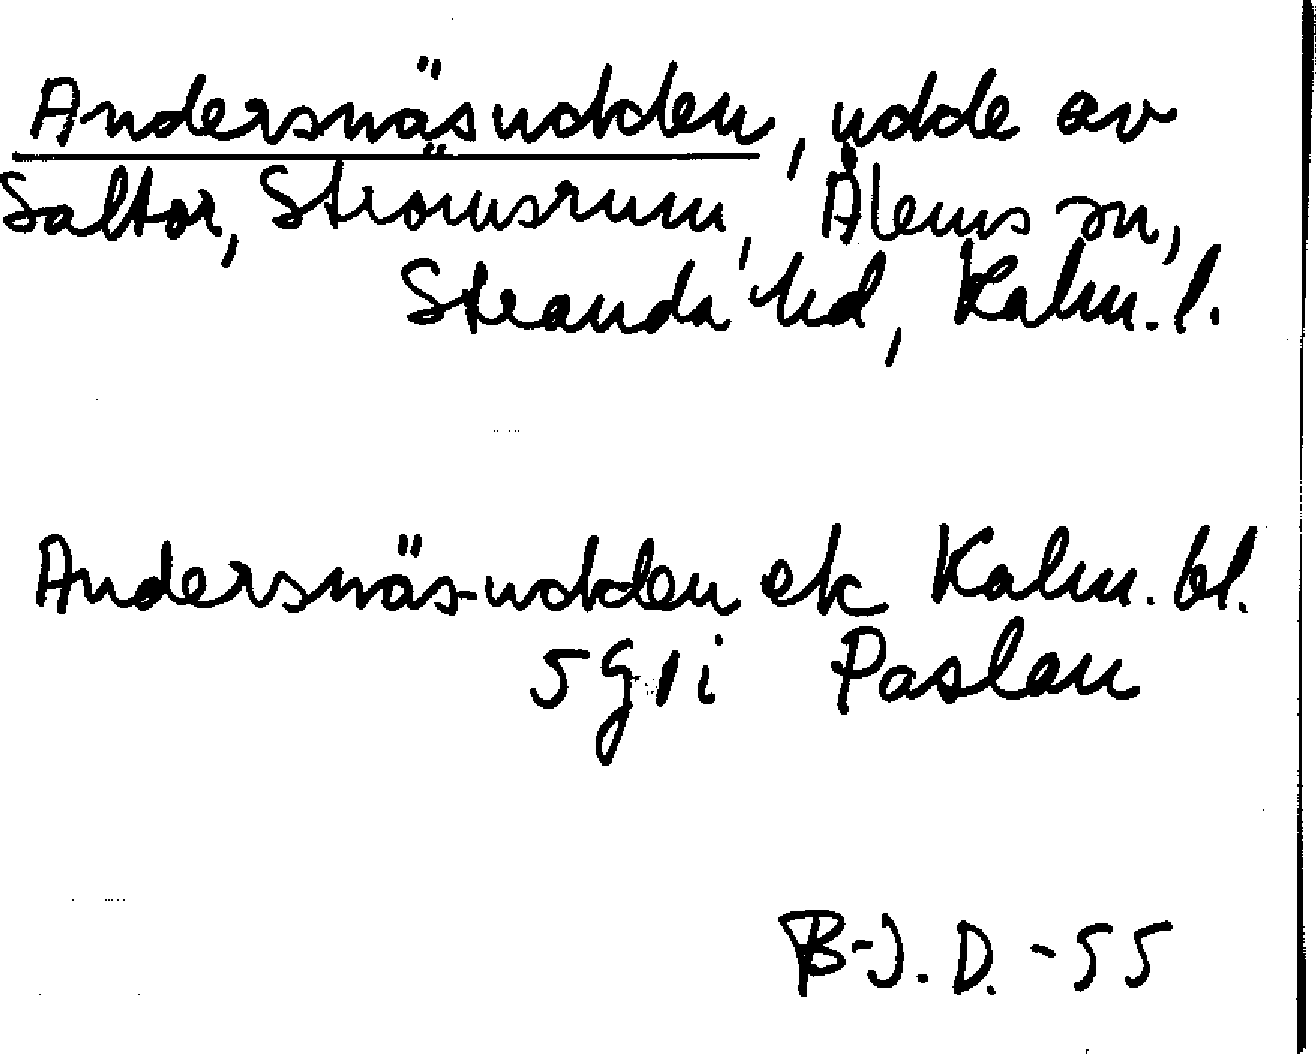 Andersnäsudden, udde av
Saltor, Strömsrum, Ålems sn,
Stranda hd, Kalm. l.
Andersnäs-udden ek Kalm. bl.
5G1i Paslan
B-J. D. -55